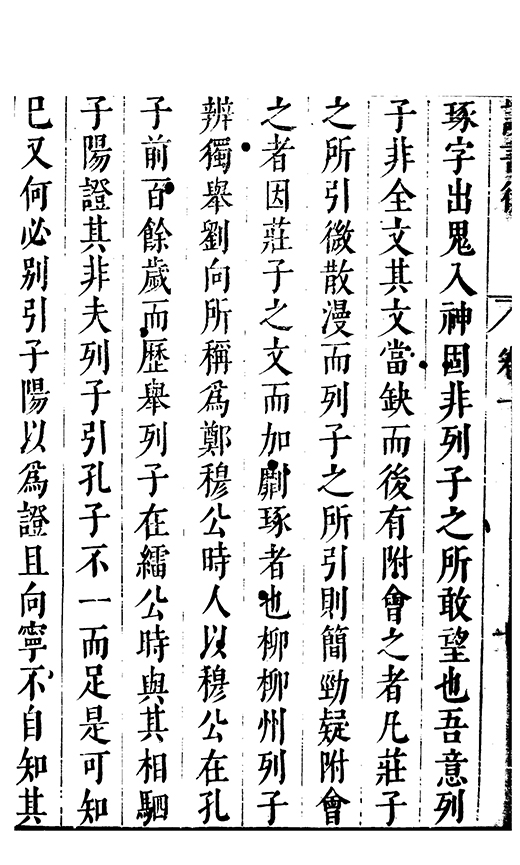 讀書後
卷一
琢字出鬼入神固非列子之所敢望也吾意列
子非全文其文當缺而後有附會之者凡莊子
之所引微散漫而列子之所引則簡勁疑附會
之者因莊子之文而加劘琢者也柳柳州列子
辨獨舉劉向所稱爲鄭穆公時人以穆公在孔
子前百餘歲而歷舉列子在繻公時與其相駟
子陽證其非夫列子引孔子不一而足是可知
已又何必别引子陽以爲證且向寧不自知其